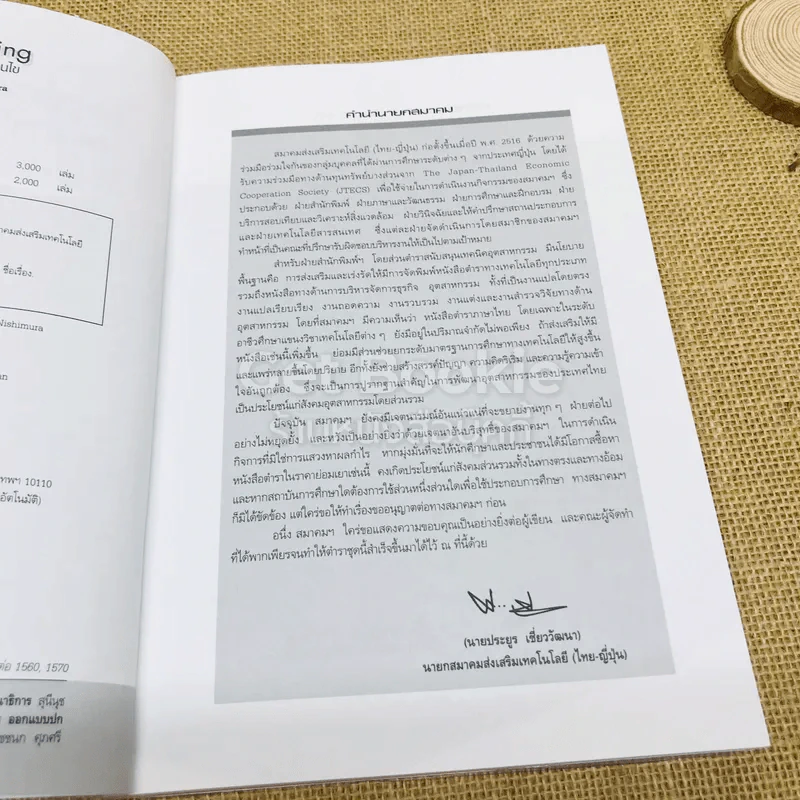 ing
นไข
ra
3,000 เล่ม
2,000 เล่ม
าคมส่งเสริมเทคโนโลยี
ชื่อเรื่อง
Nishimura
an
เทพฯ 10110
อัตโนมัติ)
ต่อ 1560, 1570
นาธิการ สุนีนุช
ออกแบบปก
ชชนก ศุภศรี
คำนำนายกสมาคม
สมาคมส่งเสริมเทคโนโลยี (ไทย-ญี่ปุ่น) ก่อตั้งขึ้นเมื่อปี พ.ศ. 2516 ด้วยความ
ร่วมมือร่วมใจกันของกลุ่มบุคคลที่ได้ผ่านการศึกษาระดับต่าง ๆ จากประเทศญี่ปุ่น โดยได้
รับความร่วมมือทางด้านทุนทรัพย์บางส่วนจาก The Japan-Thailand Economic
Cooperation Society (JTECS) เพื่อใช้จ่ายในการดำเนินงานกิจกรรมของสมาคมฯ ซึ่ง
ประกอบด้วย ฝ่ายสำนักพิมพ์ ฝ่ายภาษาและวัฒนธรรม ฝ่ายการศึกษาและฝึกอบรม ฝ่าย
บริการสอบเทียบและวิเคราะห์สิ่งแวดล้อม ฝ่ายวินิจฉัยและให้คำปรึกษาสถานประกอบการ
และฝ่ายเทคโนโลยีสารสนเทศ ซึ่งแต่ละฝ่ายจัดดำเนินการโดยสมาชิกของสมาคมฯ
ทำหน้าที่เป็นคณะที่ปรึกษารับผิดชอบบริหารงานให้เป็นไปตามเป้าหมาย
สำหรับฝ่ายสำนักพิมพ์ฯ โดยส่วนตำราสนับสนุนเทคนิคอุตสาหกรรม มีนโยบาย
พื้นฐานคือ การส่งเสริมและเร่งรัดให้มีการจัดพิมพ์หนังสือตำราทางเทคโนโลยีทุกประเภท
รวมถึงหนังสือทางด้านการบริหารจัดการธุรกิจ อุตสาหกรรม ทั้งที่เป็นงานแปลโดยตรง
งานแปลเรียบเรียง งานถอดความ งานรวบรวม งานแต่งและงานสำรวจวิจัยทางด้าน
อุตสาหกรรม โดยที่สมาคมฯ มีความเห็นว่า หนังสือตำราภาษาไทย โดยเฉพาะในระดับ
อาชีวศึกษาแขนงวิชาเทคโนโลยีต่าง ๆ ยังมีอยู่ในปริมาณจำกัดไม่พอเพียง ถ้าส่งเสริมให้มี
หนังสือเช่นนี้เพิ่มขึ้น ย่อมมีส่วนช่วยยกระดับมาตรฐานการศึกษาทางเทคโนโลยีให้สูงขึ้น
และแพร่หลายขึ้นโดยปริยาย อีกทั้งยังช่วยสร้างสรรค์ปัญญา ความคิดริเริ่ม และความรู้ความเข้า
ใจอันถูกต้อง ซึ่งจะเป็นการปูรากฐานสำคัญในการพัฒนาอุตสาหกรรมของประเทศไทย
เป็นประโยชน์แก่สังคมอุตสาหกรรมโดยส่วนรวม
ปัจจุบัน สมาคมฯ ยังคงมีเจตนารมณ์อันแน่วแน่ที่จะขยายงานทุก ๆ ฝ่ายต่อไป
อย่างไม่หยุดยั้ง และหวังเป็นอย่างยิ่งว่าด้วยเจตนาอันบริสุทธิ์ของสมาคมฯ ในการดำเนิน
กิจการที่มิใช่การแสวงหาผลกำไร หากมุ่งมั่นที่จะให้นักศึกษาและประชาชนได้มีโอกาสซื้อหา
หนังสือตำราในราคาย่อมเยาเช่นนี้ คงเกิดประโยชน์แก่สังคมส่วนรวมทั้งในทางตรงและทางอ้อม
และหากสถาบันการศึกษาใดต้องการใช้ส่วนหนึ่งส่วนใดเพื่อใช้ประกอบการศึกษา ทางสมาคมฯ
ก็มิได้ขัดข้อง แต่ใคร่ขอให้ทำเรื่องขออนุญาตต่อทางสมาคมฯ ก่อน
อนึ่ง สมาคมฯ ใคร่ขอแสดงความขอบคุณเป็นอย่างยิ่งต่อผู้เขียน และคณะผู้จัดทำ
ที่ได้พากเพียรจนทำให้ตำราชุดนี้สำเร็จขึ้นมาได้ไว้ ณ ที่นี้ด้วย
(นายประยูร เชี่ยววัฒนา)
นายกสมาคมส่งเสริมเทคโนโลยี (ไทย-ญี่ปุ่น)
Get Bookie